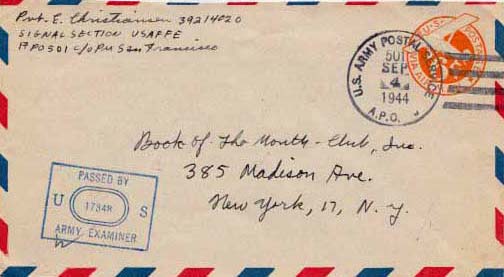 Pvt. E. Christiansen 39214020
SIGNAL SECTION USAFFE
APO 501 c/o P.M San Francisco
U.S. ARMY POSTAL SERVICE
501
SEP
4
1944
A.P.O.
U.S. POSTAGE
VIA AIR
Book of The Month-Club, Inc.
385 Madison Ave.
New York, 17, N.Y.
PASSED BY
U S
ARMY EXAMINER